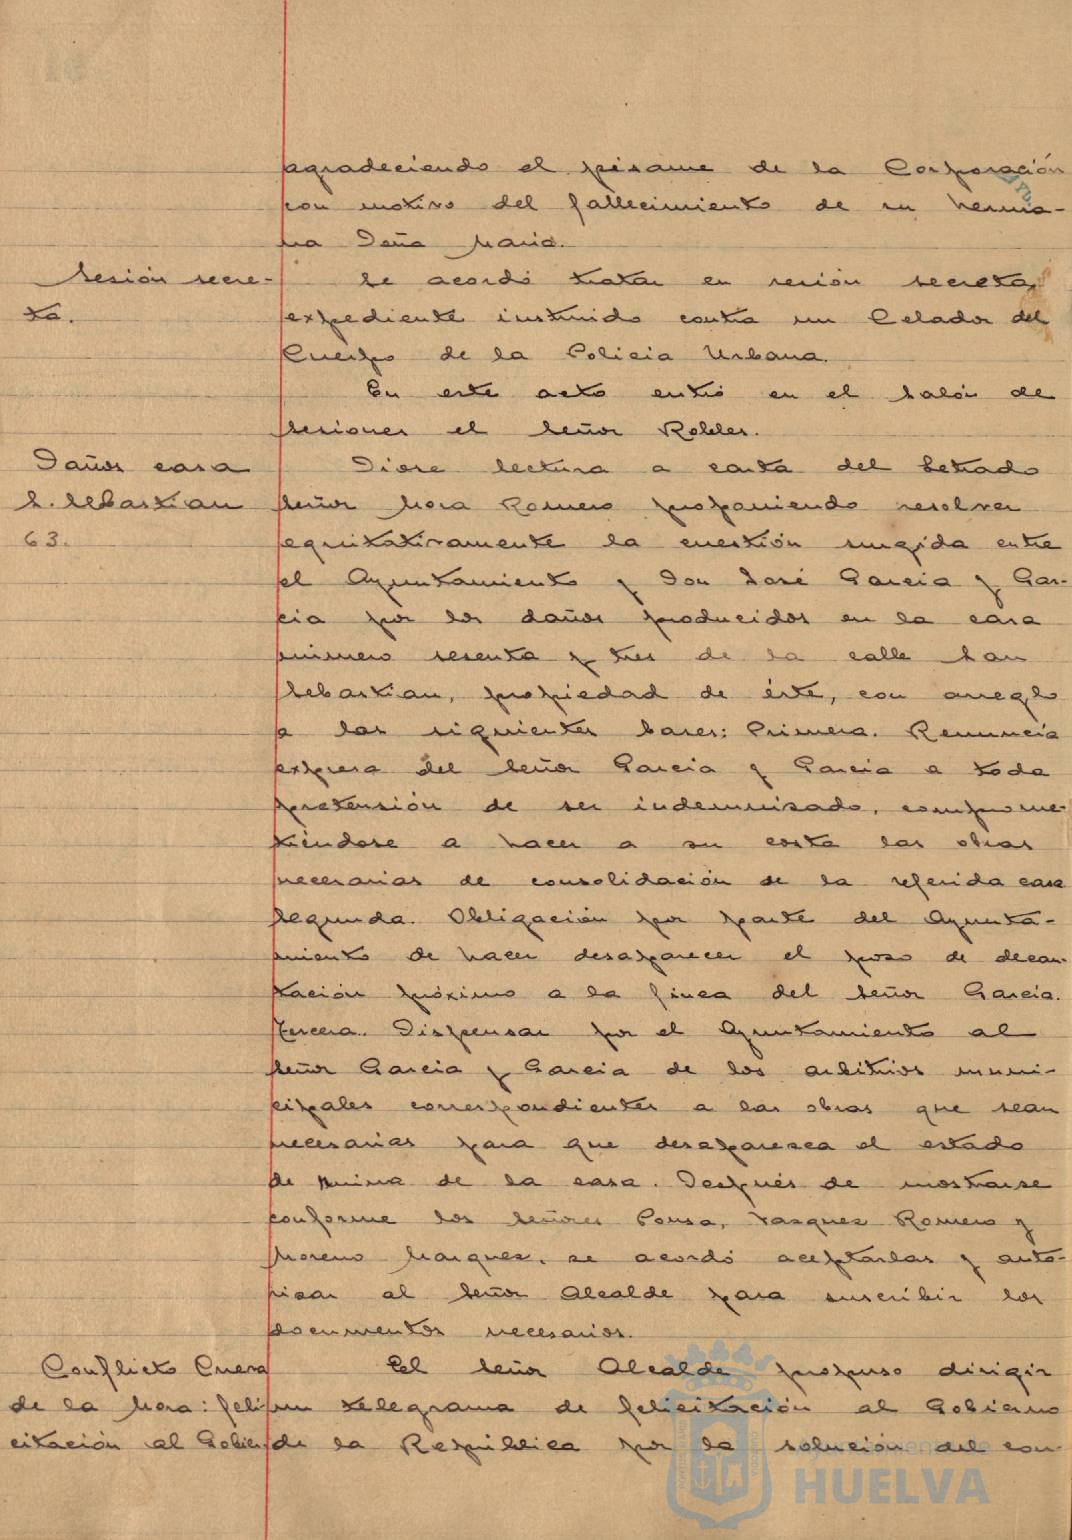 agradeciendo el pésame de la Corporación
con motivo del fallecimiento de su herma-
na Doña María.
Sesión secre-
ta.
Se acordó tratar en sesión secreta,
expediente instruido contra un Celador del
Cuerpo de la Policia Urbana.
En este acto entró en el Salón de
Sesiones el Señor Robles.
Daños casa
S. Sebastian
63.
Diose lectura a carta del Letrado
Señor Mora Romero proponiendo resolver
equitativamente la cuestión surgida entre
el Ayuntamiento y Don José Garcia y Gar-
cia por los daños producidos en la casa
número sesenta y tres de la calle San
Sebastian, propiedad de éste, con arreglo
a las siguientes bases: Primera. Renuncia
expresa del Señor Garcia y Garcia a toda
pretensión de ser indemnizado, comprome-
tiéndose a hacer a su costa las obras
necesarias de consolidación de la referida casa
Segunda. Obligación por parte del Ayunta-
miento de hacer desaparecer el pozo de decan-
tación próximo a la finca del Señor Garcia.
Tercera. Dispensar por el Ayuntamiento al
Señor Garcia y Garcia de los arbitrios muni-
cipales correspondientes a las obras que sean
necesarias para que desaparezca el estado
de ruina de la casa. Después de mostrarse
conforme los Señores Ponsa, Vasquez Romero y
Moreno Marquez, se acordó aceptarlas y auto-
rizar al Señor Alcalde para suscribir los
documentos necesarios.
Conflicto Cuenca
de la Mora: feli-
citación al Gobier
El Señor Alcalde propuso dirigir
un telegrama de felicitación al Gobierno
de la República por la solución del con-
Ayuntamiento de
HUELVA